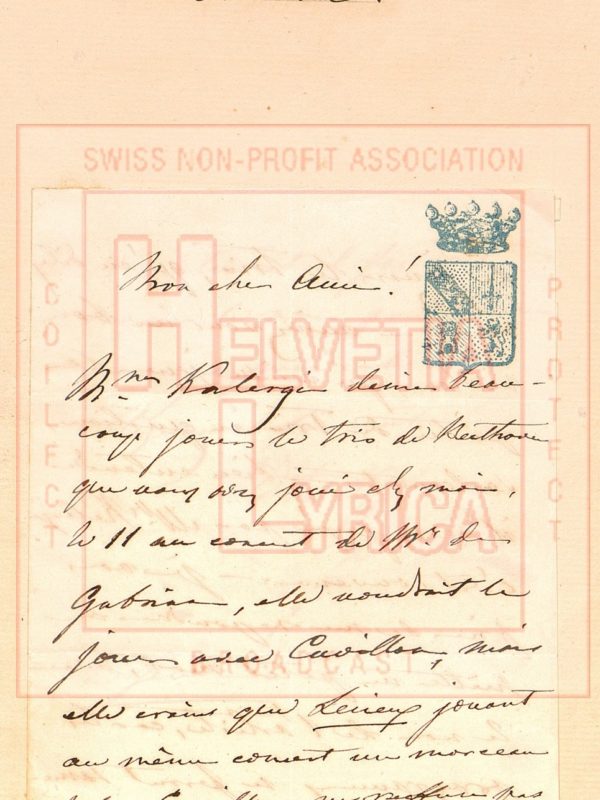 SWISS NON-PROFIT ASSOCIATION
HELVETIA
LYRICA
COLLECT.
PROTECT
BROADCAST
Mon cher Ami!
Mme Kalergi désire beau-
coup jouer le trio de Beethoven
que vous avez joué chez moi,
le 11 au concert de Mr. de
elle voudrait le
jouer avec mais
elle crains que jouant
au même concert un morceau
pas